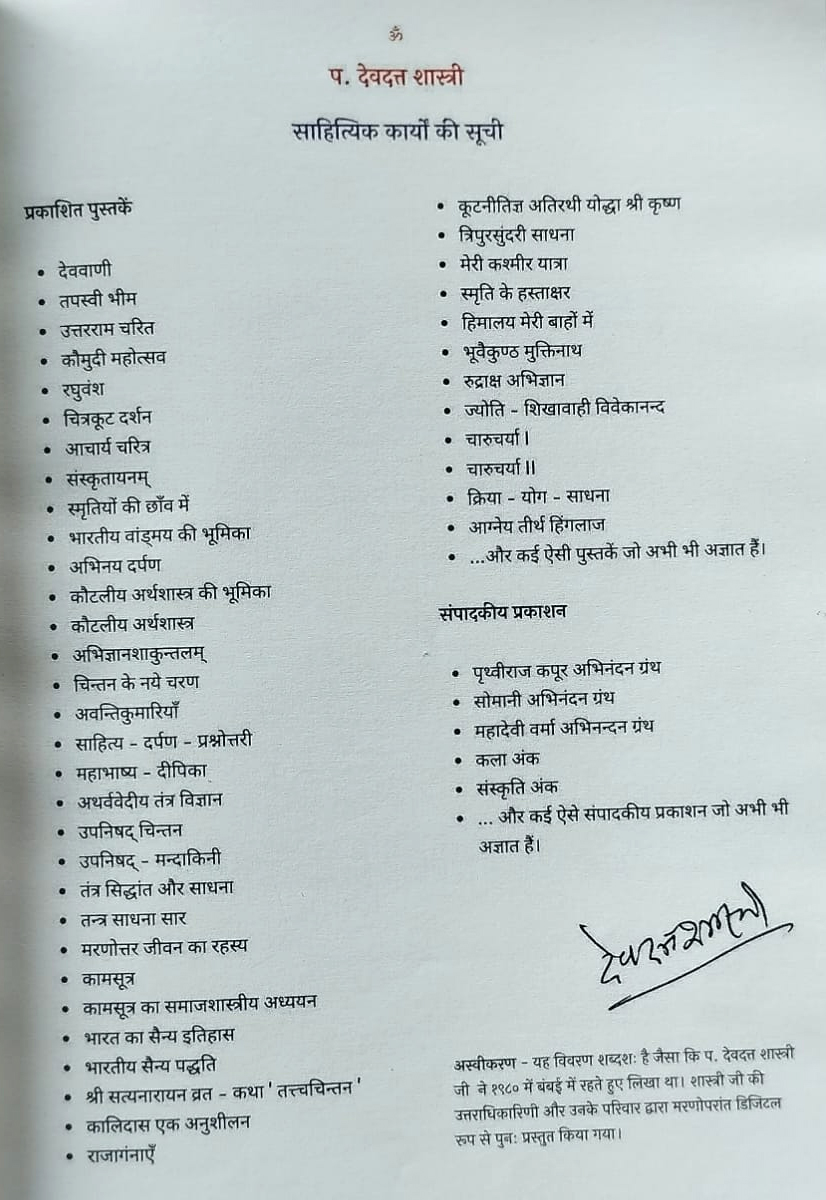 ॐ
प. देवदत्त शास्त्री
साहित्यिक कार्यों की सूची
प्रकाशित पुस्तकें
• देववाणी
• तपस्वी भीम
• उत्तरराम चरित
• कौमुदी महोत्सव
• रघुवंश
• चित्रकूट दर्शन
• आचार्य चरित्र
• संस्कृतायनम्
• स्मृतियों की छाँव में
• भारतीय वांड्मय की भूमिका
• अभिनय दर्पण
• कौटलीय अर्थशास्त्र की भूमिका
• कौटलीय अर्थशास्त्र
• अभिज्ञानशाकुन्तलम्
• चिन्तन के नये चरण
• अवन्तिकुमारियाँ
• साहित्य - दर्पण - प्रश्नोत्तरी
• महाभाष्य - दीपिका
• अथर्ववेदीय तंत्र विज्ञान
• उपनिषद् चिन्तन
• उपनिषद् - मन्दाकिनी
• तंत्र सिद्धांत और साधना
• तन्त्र साधना सार
• मरणोत्तर जीवन का रहस्य
• कामसूत्र
• कामसूत्र का समाजशास्त्रीय अध्ययन
• भारत का सैन्य इतिहास
• भारतीय सैन्य पद्धति
• श्री सत्यनारायन व्रत - कथा ' तत्त्वचिन्तन '
• कालिदास एक अनुशीलन
• राजागंनाएँ
• कूटनीतिज्ञ अतिरथी योद्धा श्री कृष्ण
• त्रिपुरसुंदरी साधना
• मेरी कश्मीर यात्रा
• स्मृति के हस्ताक्षर
• हिमालय मेरी बाहों में
• भूवैकुण्ठ मुक्तिनाथ
• रुद्राक्ष अभिज्ञान
• ज्योति - शिखावाही विवेकानन्द
• चारुचर्या I
• चारुचर्या II
• क्रिया - योग - साधना
• आग्नेय तीर्थ हिंगलाज
• ...और कई ऐसी पुस्तकें जो अभी भी अज्ञात हैं।
संपादकीय प्रकाशन
• पृथ्वीराज कपूर अभिनंदन ग्रंथ
• सोमानी अभिनंदन ग्रंथ
• महादेवी वर्मा अभिनन्दन ग्रंथ
• कला अंक
• संस्कृति अंक
• ... और कई ऐसे संपादकीय प्रकाशन जो अभी भी
अज्ञात हैं।
देवदत्त शास्त्री
अस्वीकरण - यह विवरण शब्दशः है जैसा कि प. देवदत्त शास्त्री
जी ने १९८० में बंबई में रहते हुए लिखा था। शास्त्री जी की
उत्तराधिकारिणी और उनके परिवार द्वारा मरणोपरांत डिजिटल
रूप से पुनः प्रस्तुत किया गया।